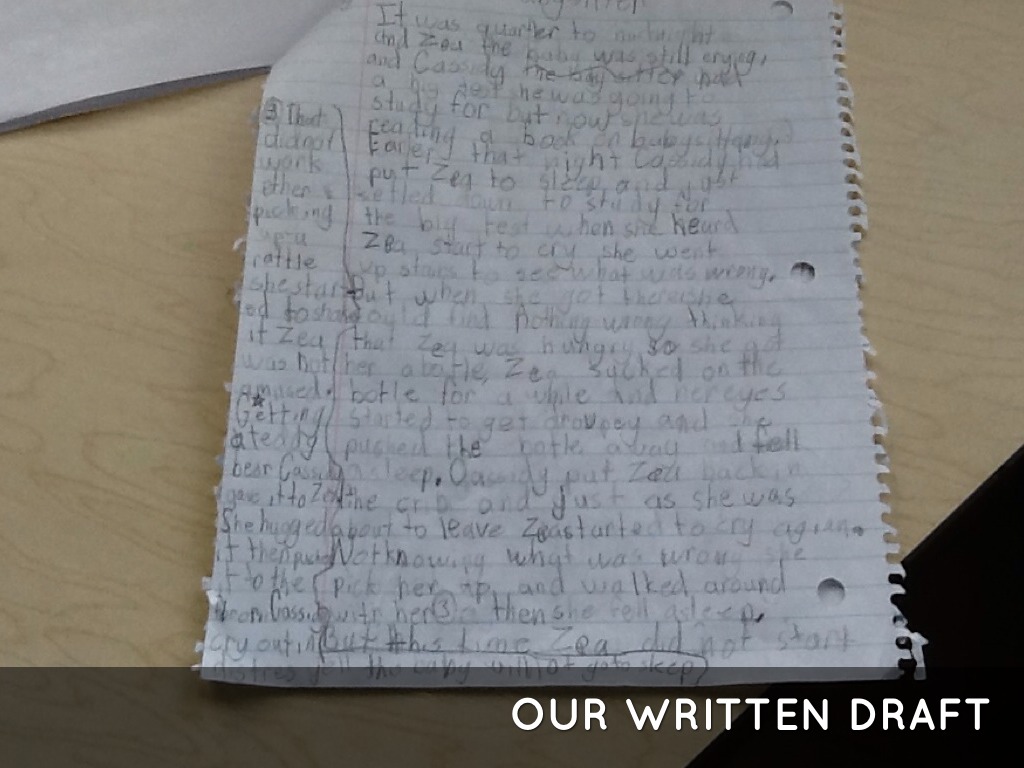 It was quarter to midnight
and Zea the baby was still crying,
and Cassidy the baby sitter had
a big test she was going to
study for but now she was
reading a book on babysitting.
Earler that night Cassidy had
put Zea to sleep and got
setled down to study for
the big test when she heard
Zea start to cry she went
up stairs to see what was wrong.
But when she got there she
could find nothing wrong thinking
that Zea was hungry so she got
her a botle, Zea sucked on the
botle for a while and her eyes
started to get droupey and she
pushed the botle away and fell
asleep. Cassidy put Zea back in
the crib and just as she was
about to leave Zea started to cry again.
Not knowing what was wrong she
pick her up and walked around
with her ③ then she fell asleep.
but this time Zea did not start
③ That
did not
work
ether
picking
up a
rattle
she start
ed to shake
it Zea
was not
amused.
Getting
a teddy
bear Cassidy
gave it to Zea
She hugged
it then put
it to the
Cassidy
cry out in
distres yell the baby will not go to sleep
OUR WRITTEN DRAFT